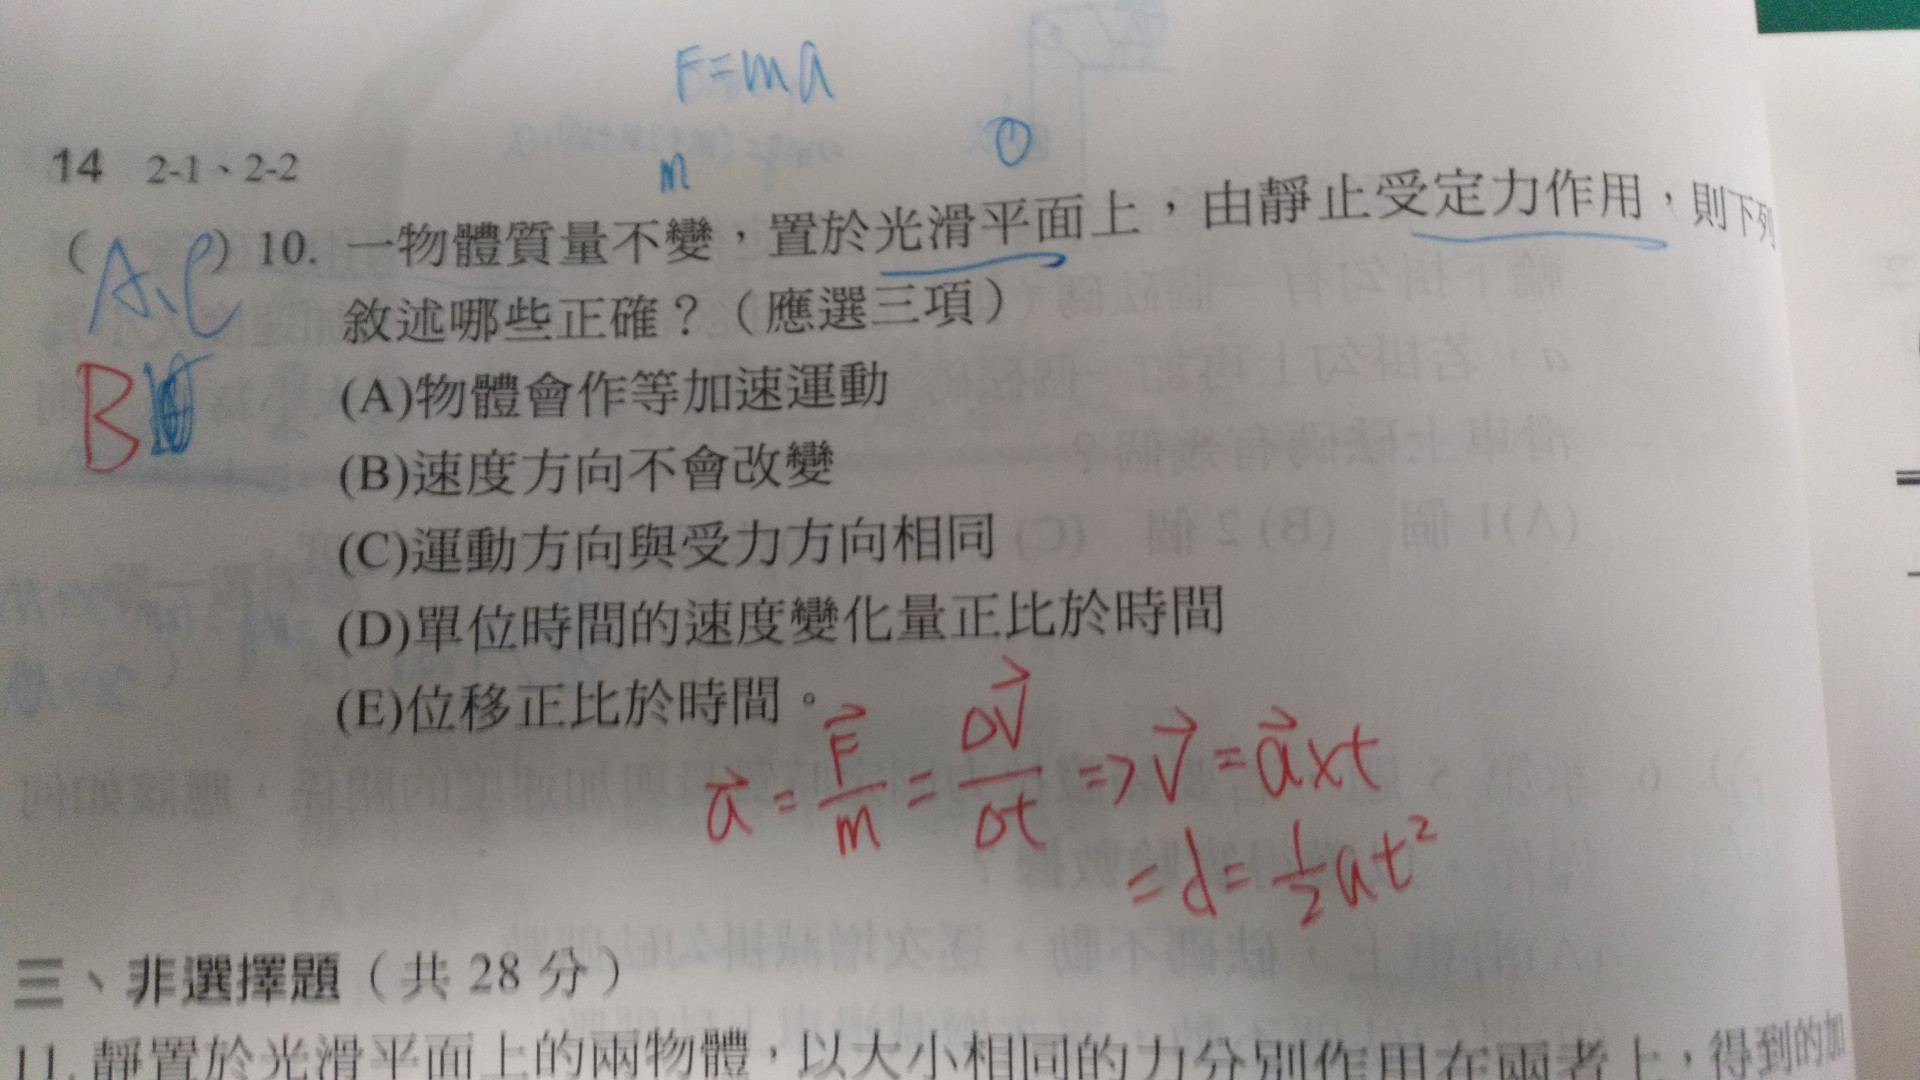 F=ma
m
0
14 2-1、2-2
(A、C) 10. 一物體質量不變，置於光滑平面上，由靜止受定力作用，則下列
敘述哪些正確？（應選三項）
B
(A)物體會作等加速運動
(B)速度方向不會改變
(C)運動方向與受力方向相同
(D)單位時間的速度變化量正比於時間
(E)位移正比於時間。
a = F/m = ΔV/Δt => V = a×t
= d = 1/2 at²
三、非選擇題（共 28 分）
11. 靜置於光滑平面上的兩物體，以大小相同的力分別作用在兩者上，得到的加